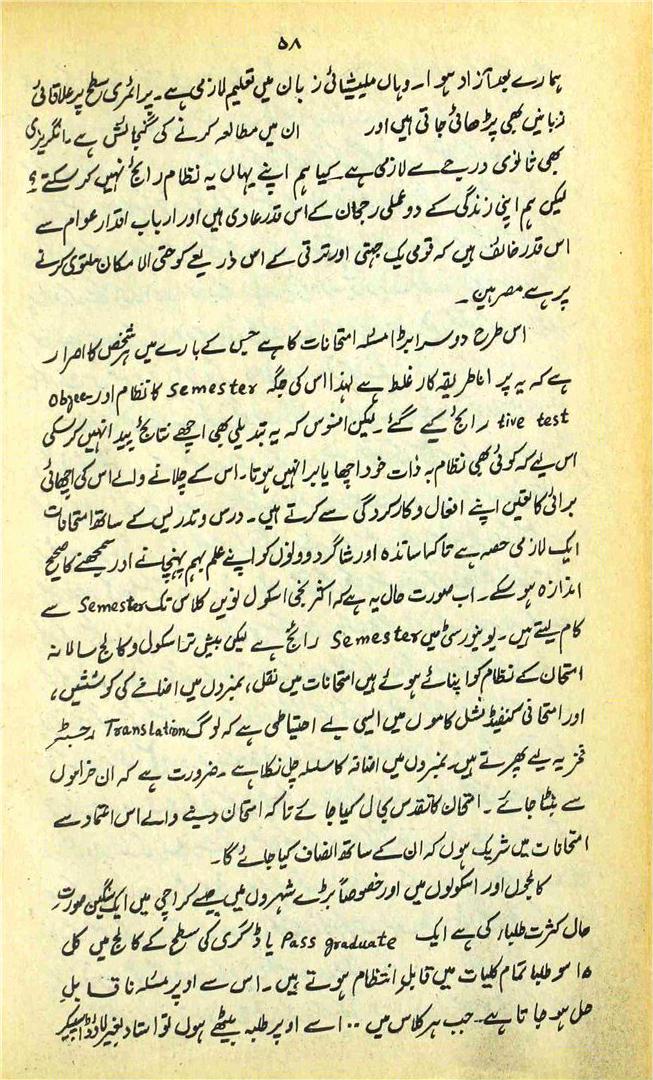 ۵۸
ہمارے بعد آزاد ہوا۔ وہاں ملیشائی زبان میں تعلیم لازمی ہے۔ پرائمری سطح پر علاقائی
زبانیں بھی پڑھائی جاتی ہیں اور ان میں مطالعہ کرنے کی گنجائش ہے۔ انگریزی
بھی ثانوی درجے سے لازمی ہے۔ کیا ہم اپنے یہاں یہ نظام رائج نہیں کر سکتے؟
لیکن ہم اپنی زندگی کے دو عملی رجحان کے اس قدر عادی ہیں اور ارباب اقدار عوام سے
اس قدر خائف ہیں کہ قومی یک جہتی اور ترقی کے اس ذریعے کو حتی الامکان ملتوی کرنے
پر سے مصر ہیں۔
اس طرح دوسرا بڑا مسئلہ امتحانات کا ہے جس کے بارے میں ہر شخص کا اصرار
ہے کہ یہ پرانا طریقہ کار غلط ہے لہٰذا اس کی جگہ Semester کا نظام اور Objec-
tive test رائج کیے گئے۔ لیکن افسوس کہ یہ تبدیلی بھی اچھے نتائج پیدا نہیں کر سکی
اس لیے کہ کوئی بھی نظام بہ ذات خود اچھا یا برا نہیں ہوتا۔ اس کے چلانے والے اس کی اچھائی
برائی کا تعین اپنے افعال و کارکردگی سے کرتے ہیں۔ درس و تدریس کے ساتھ امتحانات
ایک لازمی حصہ ہے تاکہ اساتذہ اور شاگرد دونوں کو اپنے علم بہم پہنچانے اور سمجھنے کا صحیح
اندازہ ہو سکے۔ اب صورت حال یہ ہے کہ اکثر نجی اسکول نویں کلاس تک Semester سے
کام لیتے ہیں۔ یونیورسٹی میں Semester رائج ہے لیکن بیش تر اسکول و کالج سالانہ
امتحان کے نظام کو اپنائے ہوئے ہیں امتحانات میں نقل، نمبردل میں اضافے کی کوششیں،
اور امتحانی کنفیڈنشل کاموں میں ایسی بے احتیاطی ہے کہ لوگ Translation رجسٹر
فخریہ لیے پھرتے ہیں۔ نمبردل میں اضافہ کا سلسلہ چل نکلا ہے۔ ضرورت ہے کہ ان خرابیوں
سے نپٹا جائے۔ امتحان کا تقدس بحال کیا جائے تاکہ امتحان دینے والے اس اعتماد سے
امتحانات میں شریک ہوں کہ ان کے ساتھ انصاف کیا جائے گا۔
کالجوں اور اسکولوں میں اور خصوصاً بڑے شہروں میں جیسے کراچی میں ایک سنگین صورت
حال کثرت طلباء کی ہے ایک Pass graduate یا ڈگری کی سطح کے کالج میں کل
۱۵ سو طلبا تمام کلیات میں قابل انتظام ہوتے ہیں۔ اس سے اوپر مسئلہ ناقابل
حل ہو جاتا ہے۔ جب ہر کلاس میں ۱۰۰ سے اوپر طلبہ بیٹھے ہوں تو استاد بغیر لاؤڈ اسپیکر